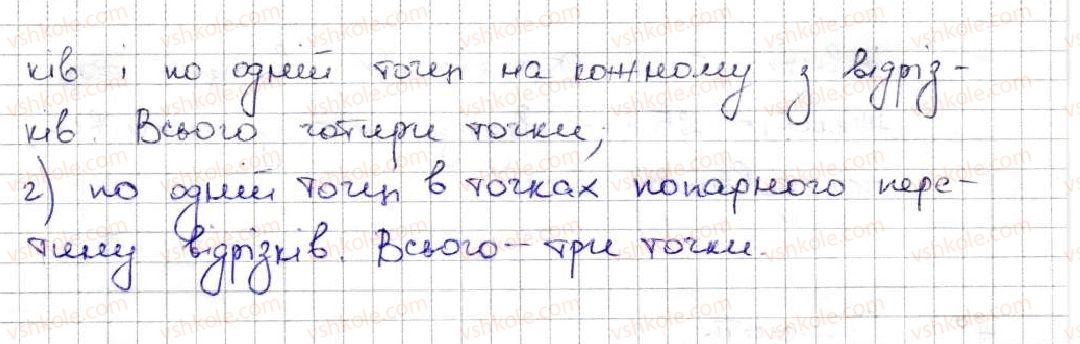 ків і по одній точці на кожному з відріз-
ків. Всього чотири точки;
г) по одній точці в точках попарного пере-
тину відрізків. Всього - три точки.